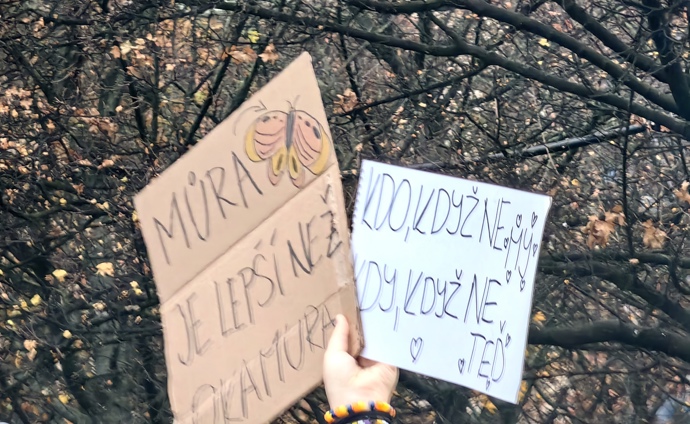 MŮRA
JE LEPŠÍ NEŽ
OKAMURA
KDO, KDYŽ NE MY
KDY, KDYŽ NE
TEĎ